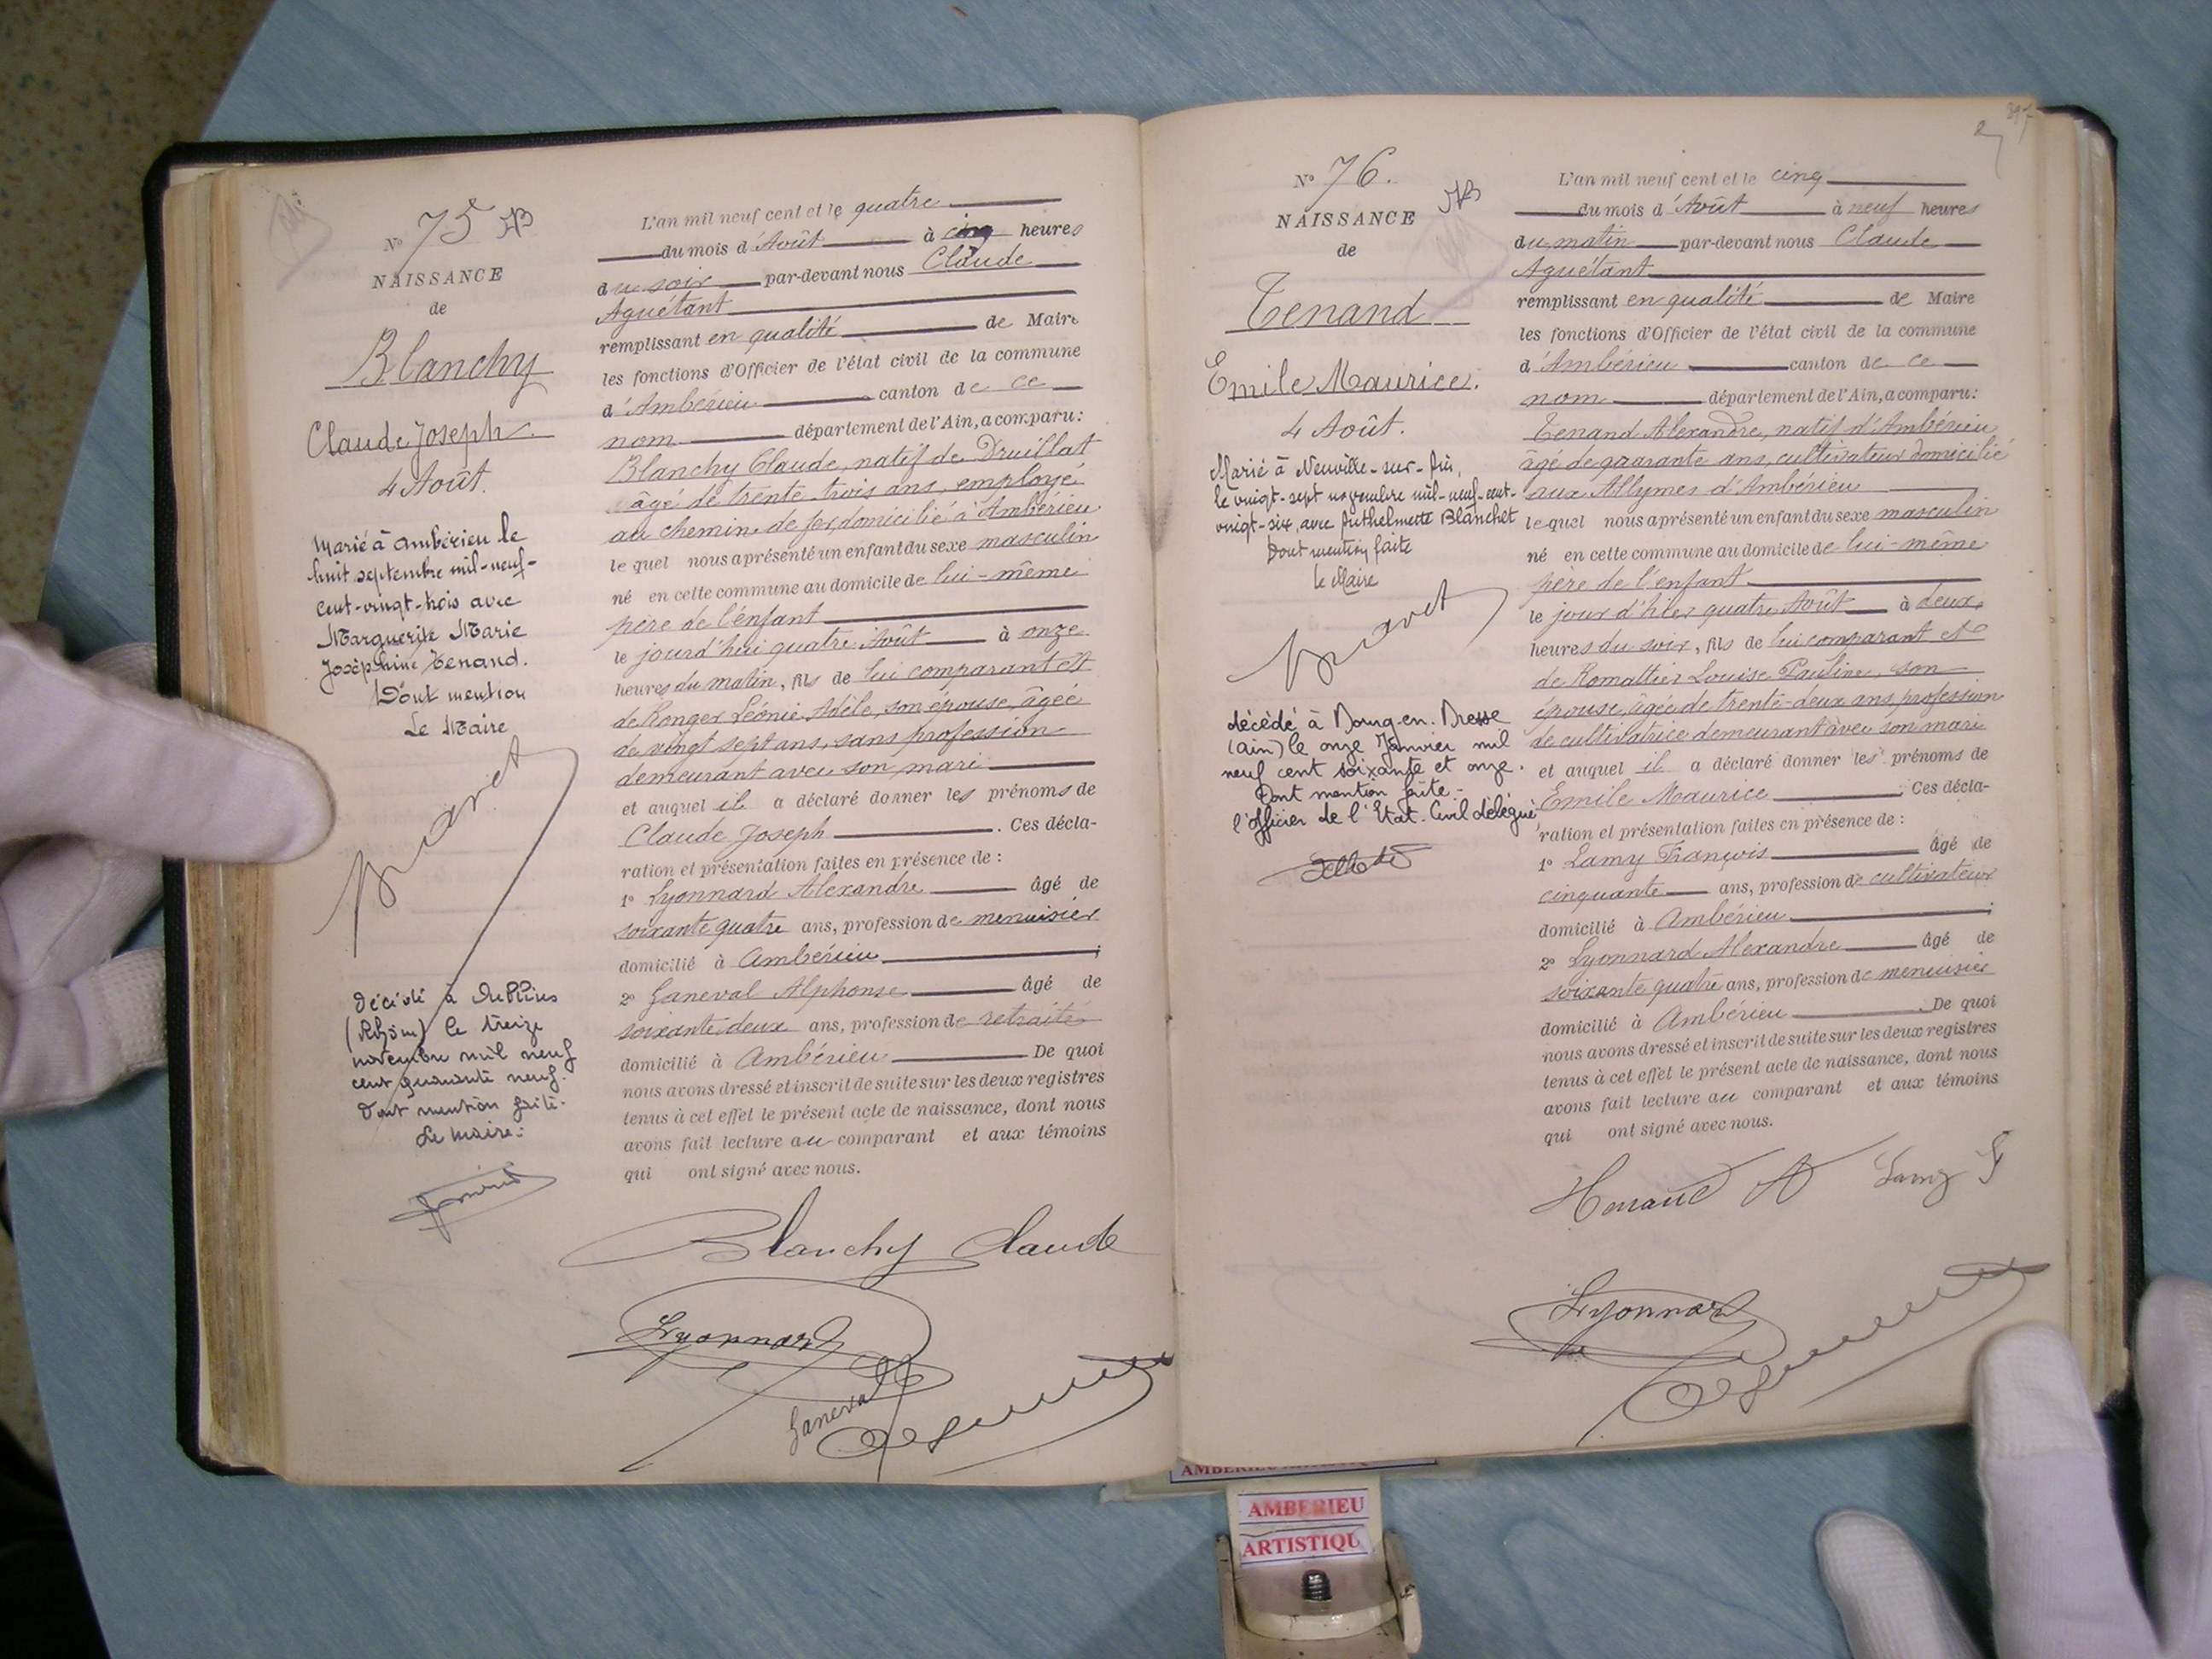 N° 75
NAISSANCE
de
Blanchy
Claude Joseph
4 Août.
Marié à Ambérieu le
huit septembre mil-neuf-
cent-vingt-trois avec
Marguerite Marie
Joséphine Tenand.
Dont mention
Le Maire
décédé à
(Rhône) le treize
novembre mil neuf
cent quarante neuf.
Dont mention faite.
Le Maire:
L'an mil neuf cent et le quatre
du mois d'Août à cinq heures
du soir par-devant nous Claude
Aguétant
remplissant en qualité de Maire
les fonctions d'Officier de l'état civil de la commune
d'Ambérieu canton de ce
nom département de l'Ain, a comparu:
Blanchy Claude, natif de Druillat
âgé de trente trois ans, employé
au chemin de fer, domicilié à Ambérieu
lequel nous a présenté un enfant du sexe masculin
né en cette commune au domicile de lui-même
père de l'enfant
le jourd'hui quatre Août à onze
heures du matin, fils de lui comparant et
de Ronger Léonie Adèle, son épouse, âgée
de vingt sept ans, sans profession
demeurant avec son mari
et auquel il a déclaré donner les prénoms de
Claude Joseph. Ces décla-
ration et présentation faites en présence de :
1° Lyonnard Alexandre âgé de
soixante quatre ans, profession de menuisier
domicilié à Ambérieu;
2° Ganeval Alphonse âgé de
soixante deux ans, profession de retraité
domicilié à Ambérieu De quoi
nous avons dressé et inscrit de suite sur les deux registres
tenus à cet effet le présent acte de naissance, dont nous
avons fait lecture au comparant et aux témoins
qui ont signé avec nous.
Blanchy Claude
Lyonnard
Ganeval
N° 76.
NAISSANCE
de
Tenand
Emile Maurice.
4 Août.
Marié à Neuville-sur-Ain,
le vingt-sept novembre mil-neuf-cent-
vingt-six, avec Anthelmette Blanchet
Dont mention faite
le Maire
décédé à Bourg-en-Bresse
(Ain) le onze Janvier mil
neuf cent soixante et onze.
Dont mention faite -
l'officier de l'Etat-Civil délégué
L'an mil neuf cent et le cinq
du mois d'Août à neuf heures
du matin par-devant nous Claude
Aguétant
remplissant en qualité de Maire
les fonctions d'Officier de l'état civil de la commune
d'Ambérieu canton de ce
nom département de l'Ain, a comparu:
Tenand Alexandre, natif d'Ambérieu
âgé de quarante ans, cultivateur domicilié
aux Allymes d'Ambérieu
lequel nous a présenté un enfant du sexe masculin
né en cette commune au domicile de lui-même
père de l'enfant
le jour d'hier quatre Août à deux
heures du soir, fils de lui comparant et
de Romattier Louise Pauline, son
épouse, âgée de trente-deux ans, profession
de cultivatrice demeurant avec son mari
et auquel il a déclaré donner les prénoms de
Emile Maurice. Ces décla-
ration et présentation faites en présence de :
1° Lamy François âgé de
cinquante ans, profession de cultivateur
domicilié à Ambérieu;
2° Lyonnard Alexandre âgé de
soixante quatre ans, profession de menuisier
domicilié à Ambérieu. De quoi
nous avons dressé et inscrit de suite sur les deux registres
tenus à cet effet le présent acte de naissance, dont nous
avons fait lecture au comparant et aux témoins
qui ont signé avec nous.
Tenand A Lamy F
Lyonnard
AMBERIEU
ARTISTIQU